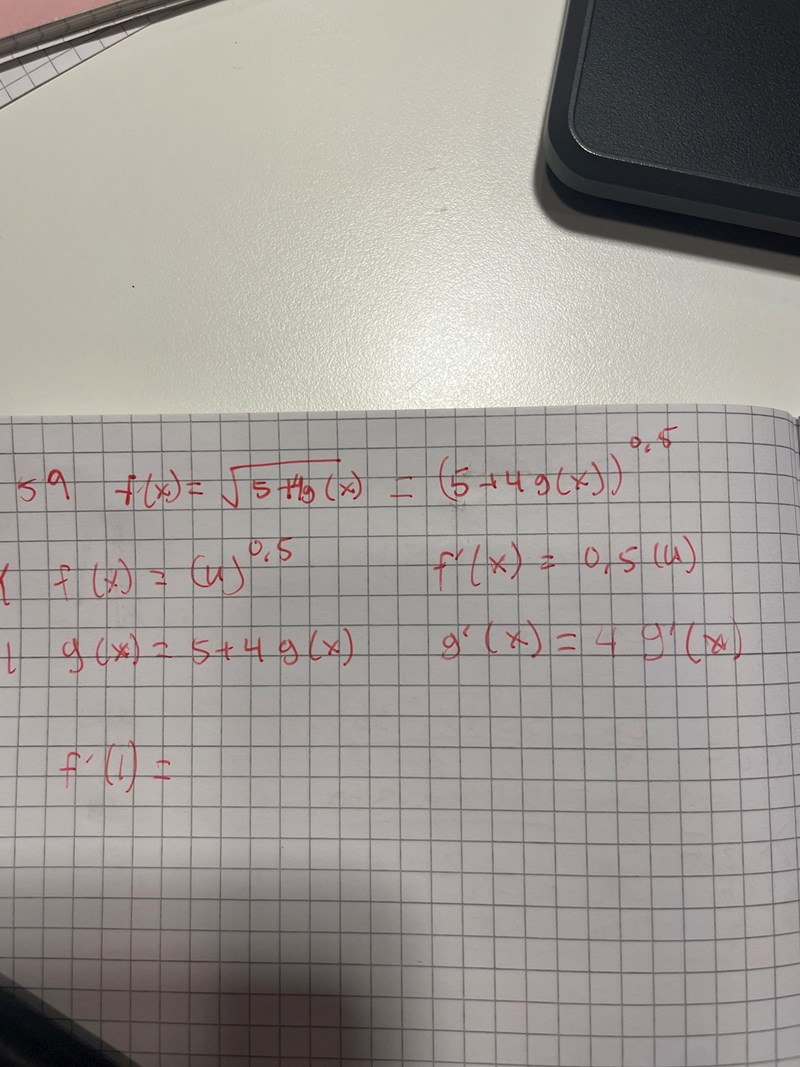 59 f(x) = √5+4g(x) = (5+4g(x))^0,5
f(x) = (u)^0,5 f'(x) = 0,5(u)
g(x) = 5+4g(x) g'(x) = 4 g'(x)
f'(1) =